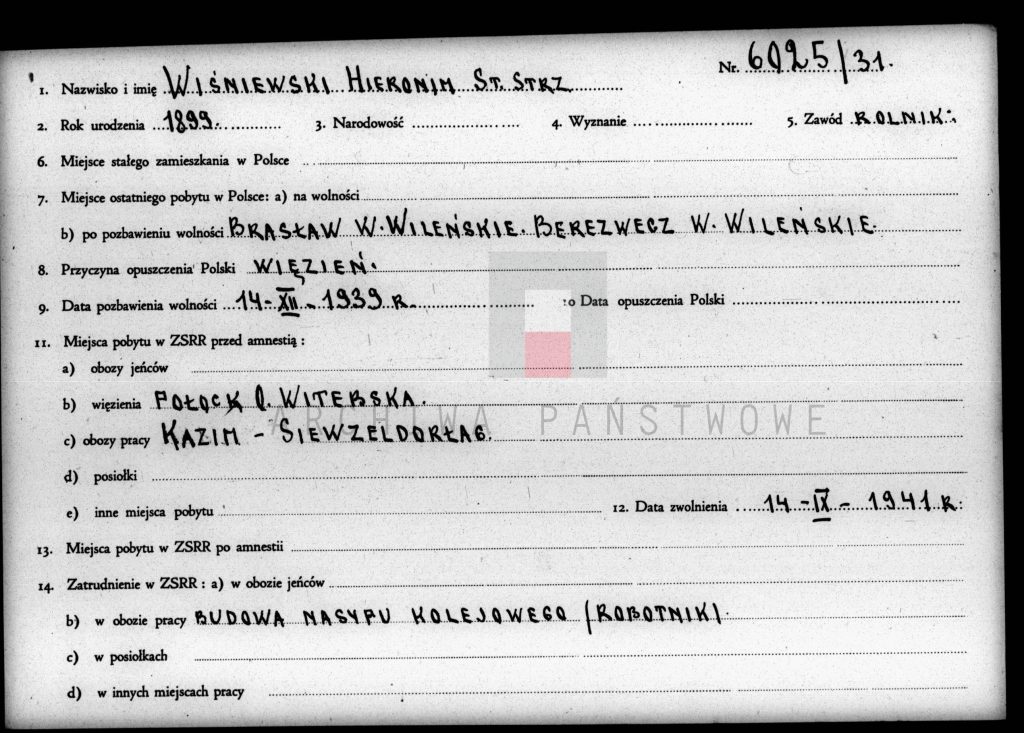 Nr. 6025/31.
1. Nazwisko i imię WIŚNIEWSKI HIERONIM ST. STRZ
2. Rok urodzenia 1899. 3. Narodowość 4. Wyznanie 5. Zawód ROLNIK.
6. Miejsce stałego zamieszkania w Polsce
7. Miejsce ostatniego pobytu w Polsce: a) na wolności
b) po pozbawieniu wolności BRASŁAW W. WILEŃSKIE. BEREZWECZ W. WILEŃSKIE.
8. Przyczyna opuszczenia Polski WIĘZIEŃ.
9. Data pozbawienia wolności 14-XII-1939 R. 10 Data opuszczenia Polski
11. Miejsca pobytu w ZSRR przed amnestią :
a) obozy jeńców
b) więzienia POŁOCK O. WITEBSKA.
ARCHIWA PAŃSTWOWE
c) obozy pracy KAZIM - SIEWZELDORŁAG.
d) posiołki
e) inne miejsca pobytu 12. Data zwolnienia 14-IX-1941 R.
13. Miejsca pobytu w ZSRR po amnestii
14. Zatrudnienie w ZSRR : a) w obozie jeńców
b) w obozie pracy BUDOWA NASYPU KOLEJOWEGO (ROBOTNIK).
c) w posiołkach
d) w innych miejscach pracy